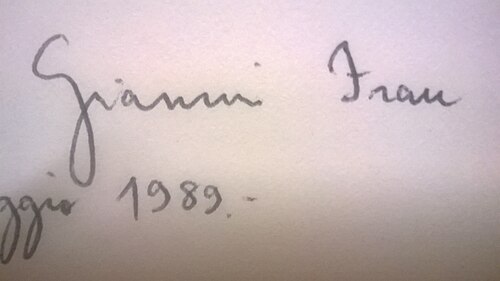 Gianni Frau
ggio 1989.-